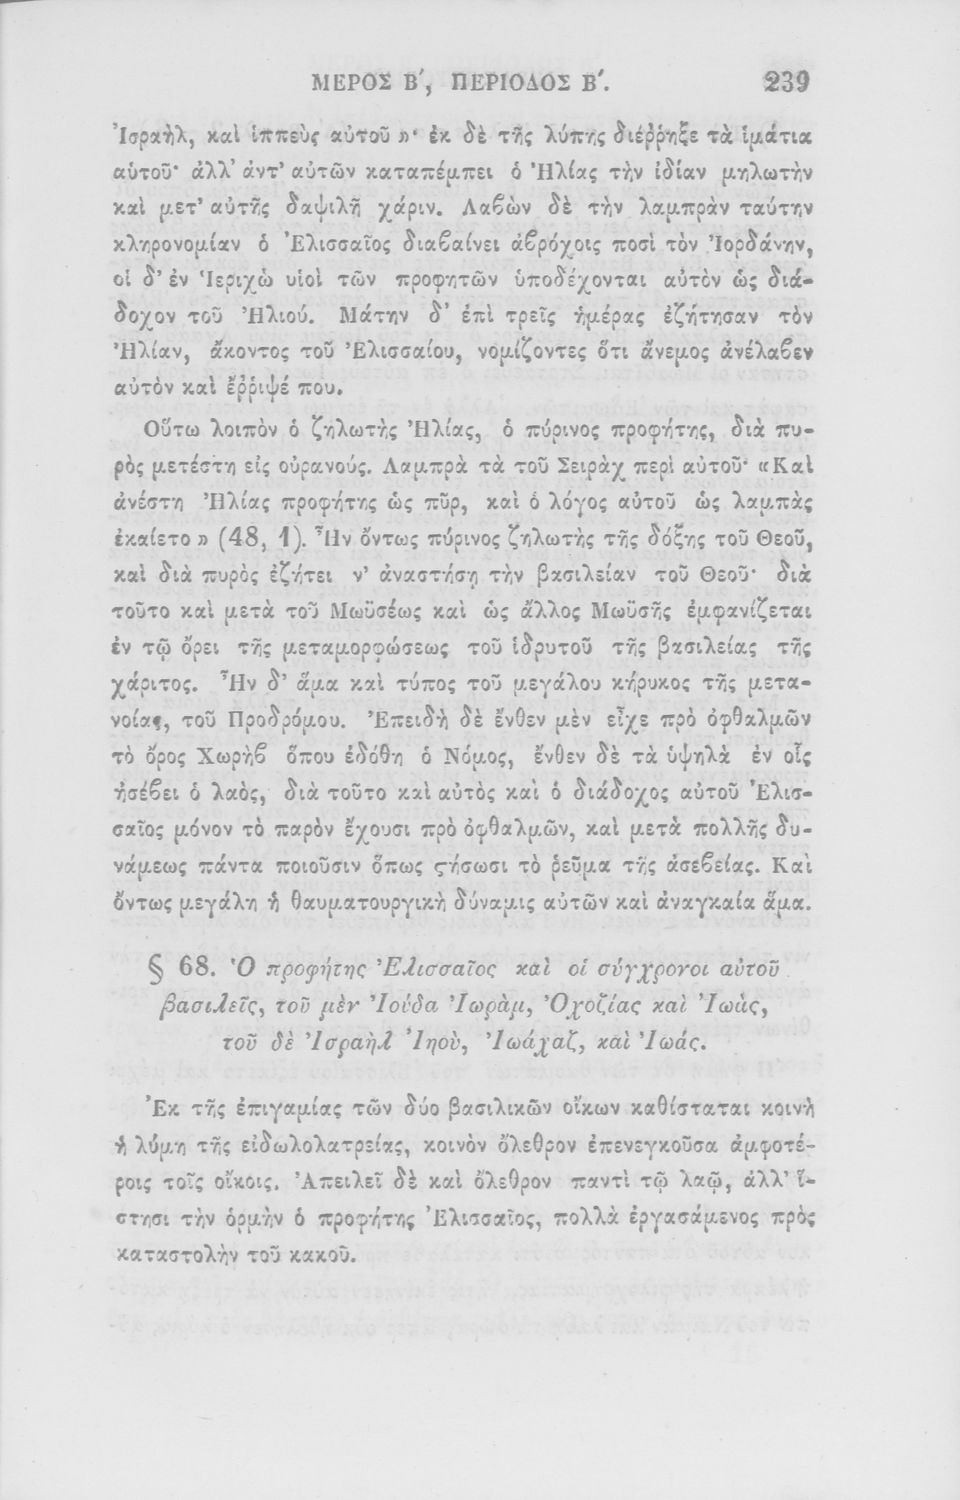 ΜΕΡΟΣ Β΄, ΠΕΡΙΟΔΟΣ Β΄. 239
Ἰσραὴλ, καὶ ἱππεὺς αὐτοῦ »· ἐκ δὲ τῆς λύπης διέῤῥηξε τὰ ἱμάτια
αὑτοῦ· ἀλλ' ἀντ' αὐτῶν καταπέμπει ὁ Ἠλίας τὴν ἰδίαν μηλωτὴν
καὶ μετ' αὐτῆς δαψιλῆ χάριν. Λαβὼν δὲ τὴν λαμπρὰν ταύτην
κληρονομίαν ὁ Ἐλισσαῖος διαβαίνει ἀβρόχοις ποσὶ τὸν Ἰορδάνην,
οἱ δ' ἐν Ἱεριχὼ υἱοὶ τῶν προφητῶν ὑποδέχονται αὐτὸν ὡς διά-
δοχον τοῦ Ἠλιού. Μάτην δ' ἐπὶ τρεῖς ἡμέρας ἐζήτησαν τὸν
Ἠλίαν, ἄκοντος τοῦ Ἐλισσαίου, νομίζοντες ὅτι ἄνεμος ἀνέλαβεν
αὐτὸν καὶ ἔῤῥιψέ που.
Οὕτω λοιπὸν ὁ ζηλωτὴς Ἠλίας, ὁ πύρινος προφήτης, διὰ πυ-
ρὸς μετέστη εἰς οὐρανούς. Λαμπρὰ τὰ τοῦ Σειρὰχ περὶ αὐτοῦ· «Καὶ
ἀνέστη Ἠλίας προφήτης ὡς πῦρ, καὶ ὁ λόγος αὐτοῦ ὡς λαμπὰς
ἐκαίετο » (48, 1). Ἦν ὄντως πύρινος ζηλωτὴς τῆς δόξης τοῦ Θεοῦ,
καὶ διὰ πυρὸς ἐζήτει ν' ἀναστήσῃ τὴν βασιλείαν τοῦ Θεοῦ· διὰ
τοῦτο καὶ μετὰ τοῦ Μωϋσέως καὶ ὡς ἄλλος Μωϋσῆς ἐμφανίζεται
ἐν τῷ ὄρει τῆς μεταμορφώσεως τοῦ ἱδρυτοῦ τῆς βασιλείας τῆς
χάριτος. Ἦν δ' ἅμα καὶ τύπος τοῦ μεγάλου κήρυκος τῆς μετα-
νοίας, τοῦ Προδρόμου. Ἐπειδὴ δὲ ἔνθεν μὲν εἶχε πρὸ ὀφθαλμῶν
τὸ ὄρος Χωρὴβ ὅπου ἐδόθη ὁ Νόμος, ἔνθεν δὲ τὰ ὑψηλὰ ἐν οἷς
ἠσέβει ὁ λαὸς, διὰ τοῦτο καὶ αὐτὸς καὶ ὁ διάδοχος αὐτοῦ Ἐλισ-
σαῖος μόνον τὸ παρὸν ἔχουσι πρὸ ὀφθαλμῶν, καὶ μετὰ πολλῆς δυ-
νάμεως πάντα ποιοῦσιν ὅπως ϛήσωσι τὸ ῥεῦμα τῆς ἀσεβείας. Καὶ
ὄντως μεγάλη ἡ θαυματουργικὴ δύναμις αὐτῶν καὶ ἀναγκαία ἅμα.
§ 68. Ὁ προφήτης Ἐλισσαῖος καὶ οἱ σύγχρονοι αὐτοῦ
βασιλεῖς, τοῦ μὲν Ἰούδα Ἰωρὰμ, Ὀχοζίας καὶ Ἰωὰς,
τοῦ δὲ Ἰσραὴλ Ἰηοὺ, Ἰωάχαζ, καὶ Ἰωάς.
Ἐκ τῆς ἐπιγαμίας τῶν δύο βασιλικῶν οἴκων καθίσταται κοινὴ
ἡ λύμη τῆς εἰδωλολατρείας, κοινὸν ὄλεθρον ἐπενεγκοῦσα ἀμφοτέ-
ροις τοῖς οἴκοις. Ἀπειλεῖ δὲ καὶ ὄλεθρον παντὶ τῷ λαῷ, ἀλλ' ἵ-
στησι τὴν ὁρμὴν ὁ προφήτης Ἐλισσαῖος, πολλὰ ἐργασάμενος πρὸς
καταστολὴν τοῦ κακοῦ.